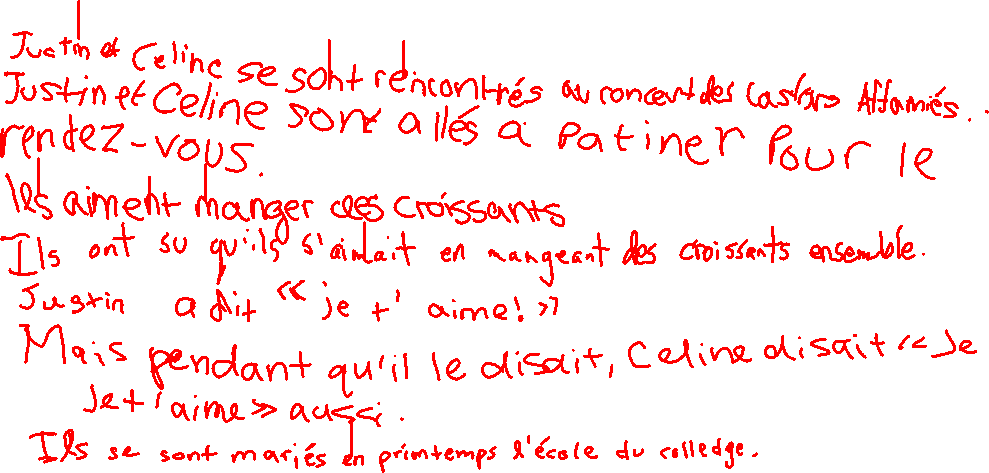 Justin et Celine se sont rencontrés au concert des Castors Affamés.
Justin et Celine sont allés à patiner pour le
rendez-vous.
Ils aiment manger des croissants
Ils ont su qu'ils s'aimait en mangeant des croissants ensemble.
Justin a dit << je t'aime! >>
Mais pendant qu'il le disait, Celine disait << Je
Je t'aime >> aussi.
Ils se sont mariés en printemps l'école du colledge.